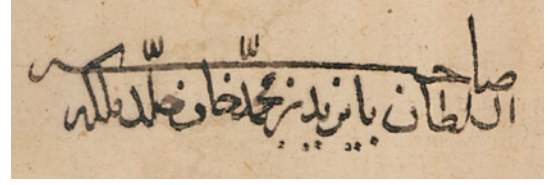 صاحبه
السلطان بايزيد بن محمّد خان خلّد ملكه